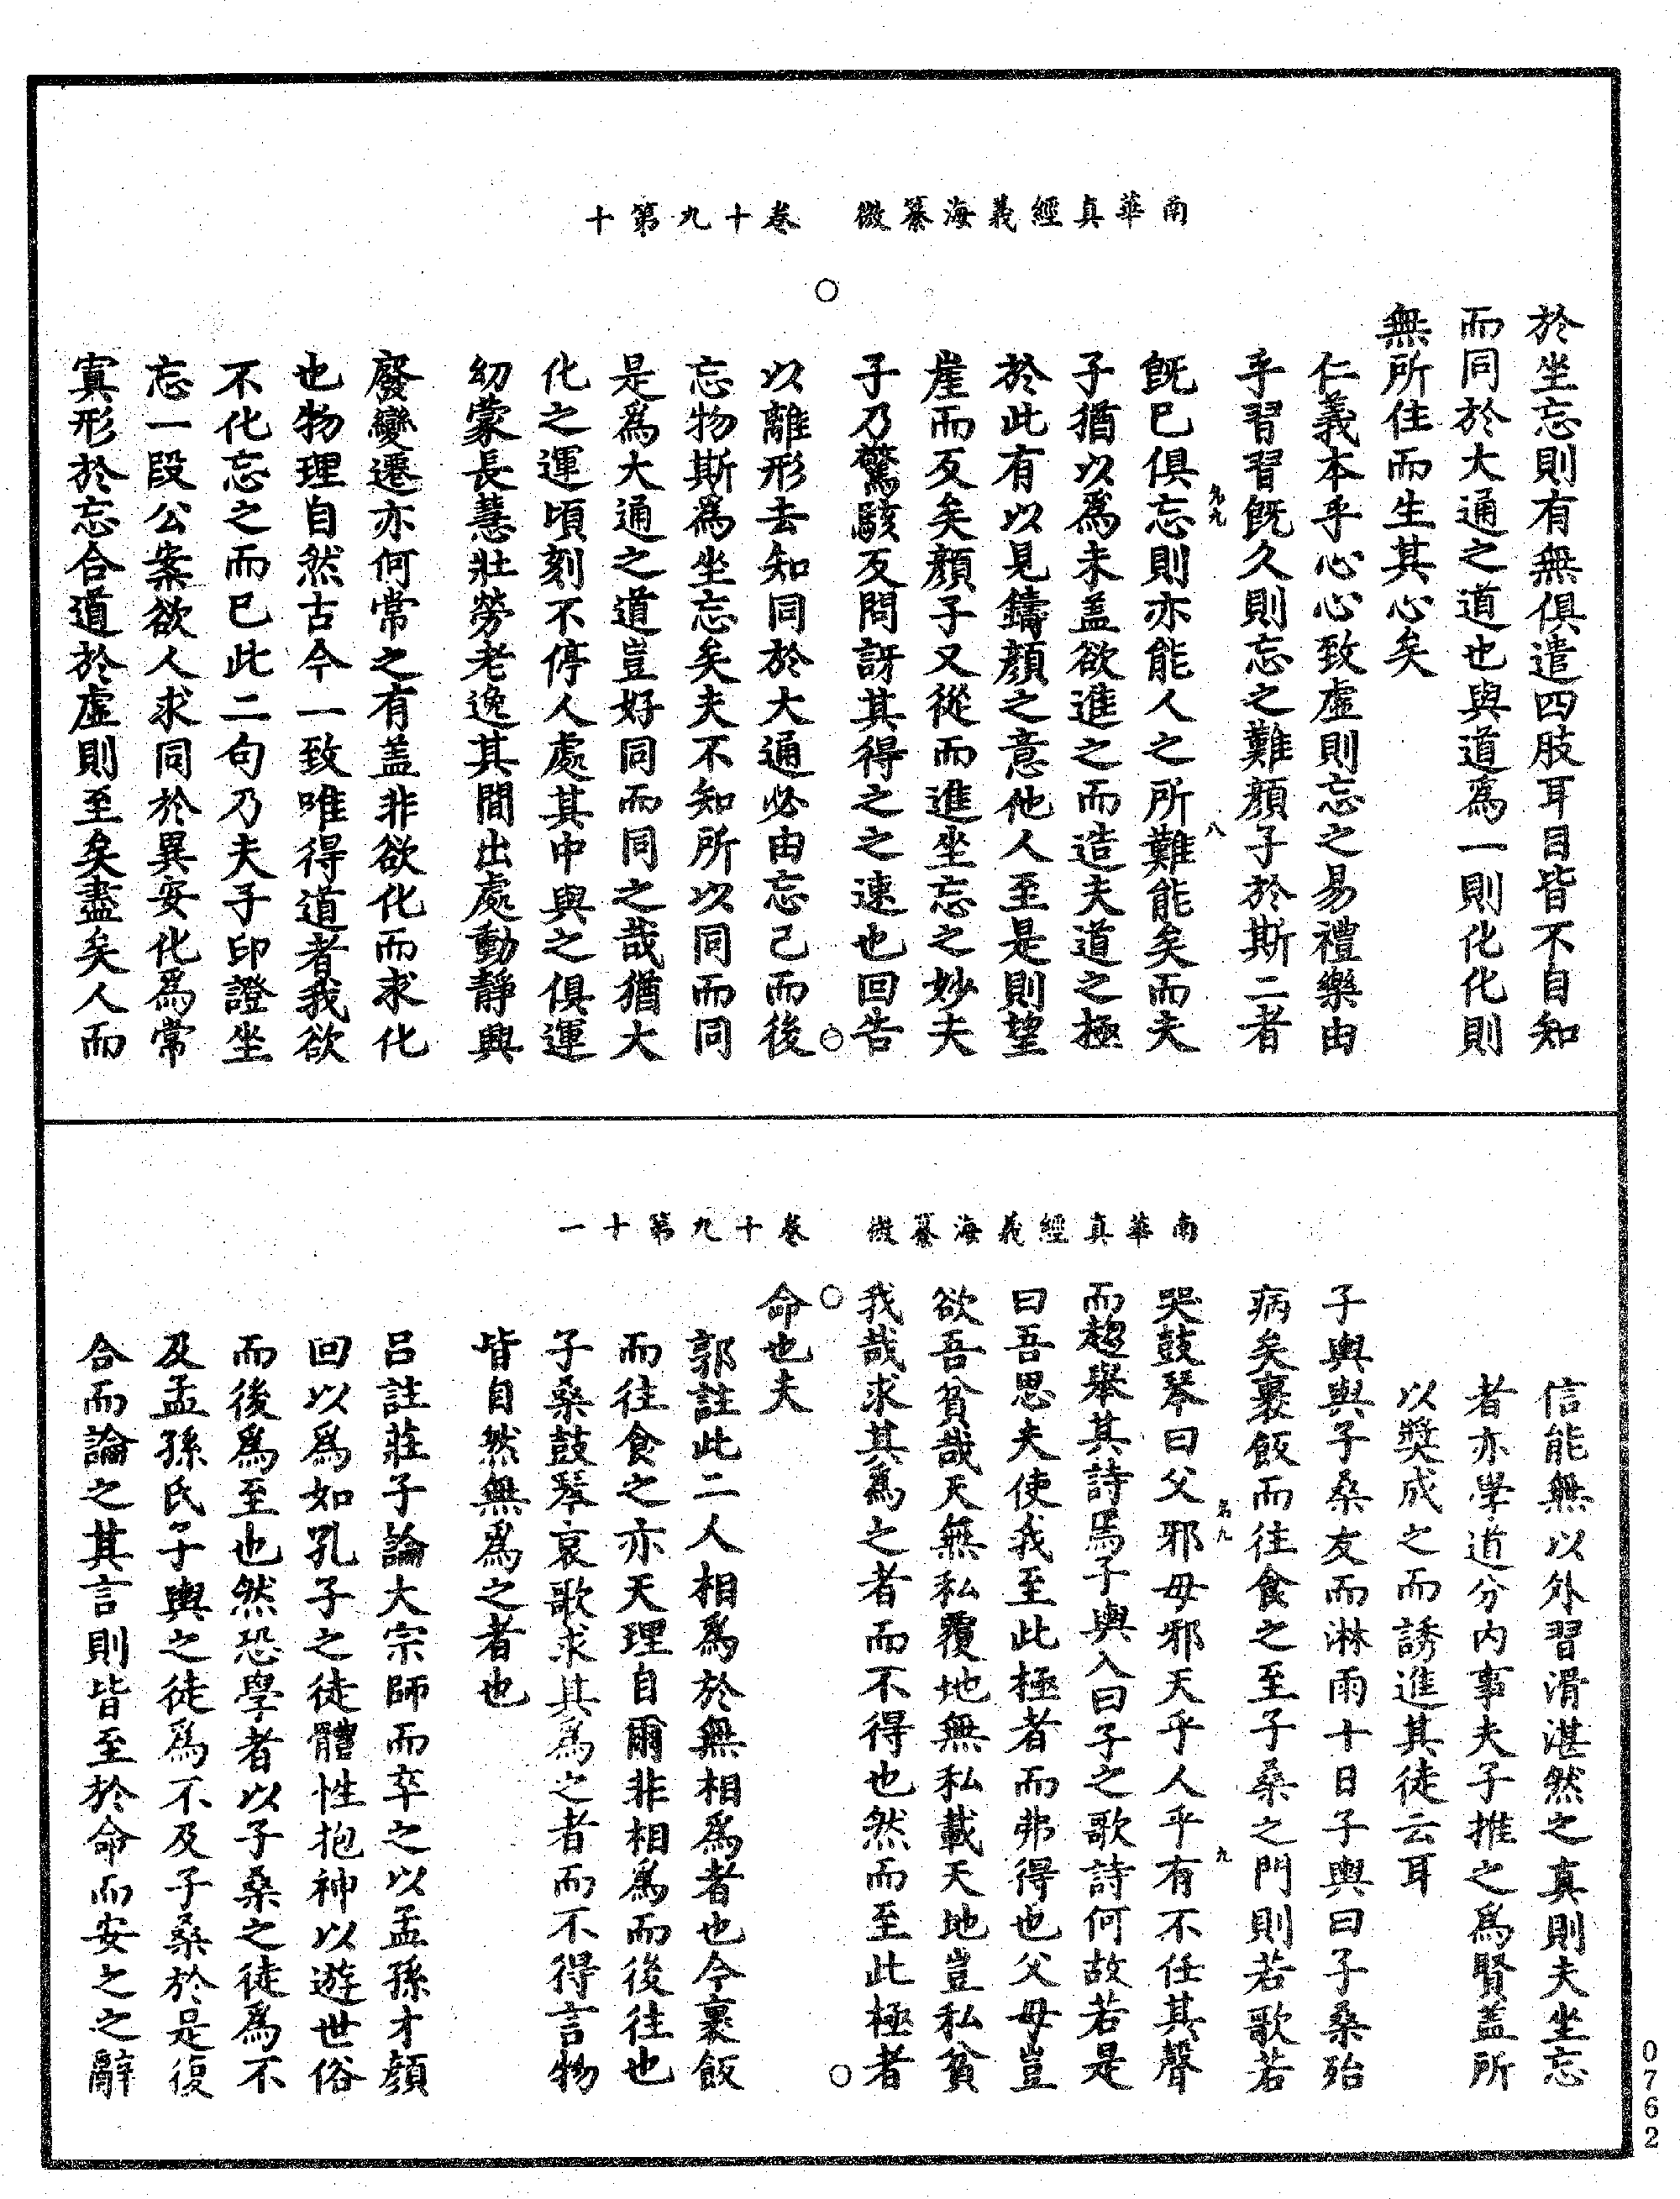 南華真經義海纂微　卷十九第十
於坐忘則有無俱遣四肢耳目皆不自知
而同於大通之道也與道爲一則化化則
無所住而生其心矣
仁義本乎心心致虛則忘之易禮樂由
乎習習旣久則忘之難顏子於斯二者
旣已俱忘則亦能人之所難能矣而夫
子猶以爲未盖欲進之而造夫道之極
於此有以見鑄顏之意他人至是則望
崖而反矣顏子又從而進坐忘之妙夫
子乃驚駭反問訝其得之之速也回告
以離形去知同於大通必由忘己而後
忘物斯爲坐忘矣夫不知所以同而同
是爲大通之道豈好同而同之哉猶大
化之運頃刻不停人處其中與之俱運
幼蒙長慧壯勞老逸其間出處動靜興
廢變遷亦何常之有盖非欲化而求化
也物理自然古今一致唯得道者我欲
不化忘之而已此二句乃夫子印證坐
忘一段公案欲人求同於異安化爲常
寘形於忘合道於虛則至矣盡矣人而
南華真經義海纂微　卷十九第十一
信能無以外習滑湛然之真則夫坐忘
者亦學道分內事夫子推之爲賢盖所
以奬成之而誘進其徒云耳
子輿與子桑友而淋雨十日子輿曰子桑殆
病矣裹飯而往食之至子桑之門則若歌若
哭鼓琴曰父邪母邪天乎人乎有不任其聲
而趨舉其詩焉子輿入曰子之歌詩何故若是
曰吾思夫使我至此極者而弗得也父母豈
欲吾貧哉天無私覆地無私載天地豈私貧
我哉求其爲之者而不得也然而至此極者
命也夫
郭註此二人相爲於無相爲者也今裹飯
而往食之亦天理自爾非相爲而後往也
子桑鼓琴哀歌求其爲之者而不得言物
皆自然無爲之者也
呂註莊子論大宗師而卒之以孟孫才顏
回以爲如孔子之徒體性抱神以遊世俗
而後爲至也然恐學者以子桑之徒爲不
及孟孫氏子輿之徒爲不及子桑於是復
合而論之其言則皆至於命而安之之辭
0762